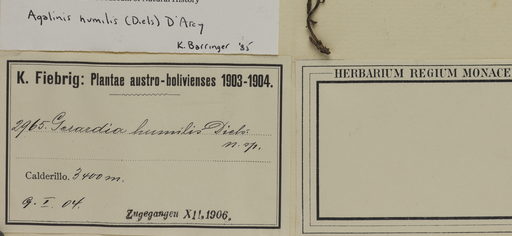 Museum of Natural History
Agalinis humilis (Diels) D'Arcy
K. Barringer '85
K. Fiebrig: Plantae austro-bolivienses 1903-1904.
2965. Gerardia humilis Diels
n. sp.
Calderillo. 3400 m.
9. I. 04.
Zugegangen XII, 1906.
HERBARIUM REGIUM MONACE